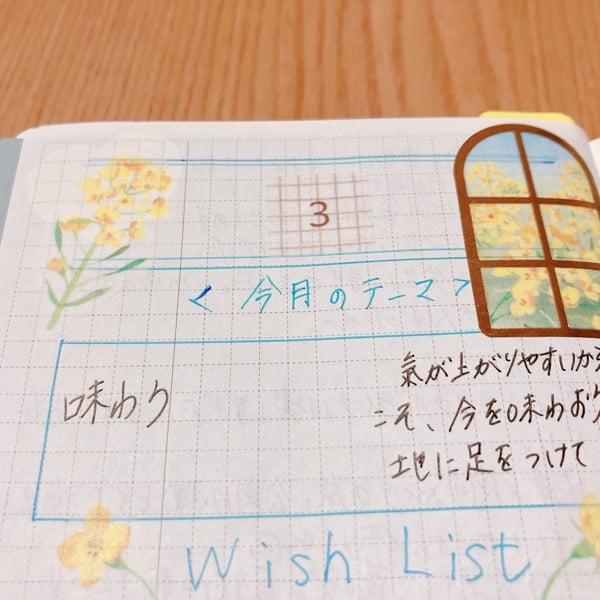 3
< 今月のテーマ >
味わう
氣が上がりやすいから
こそ、今を味わおう
地に足をつけて
Wish List